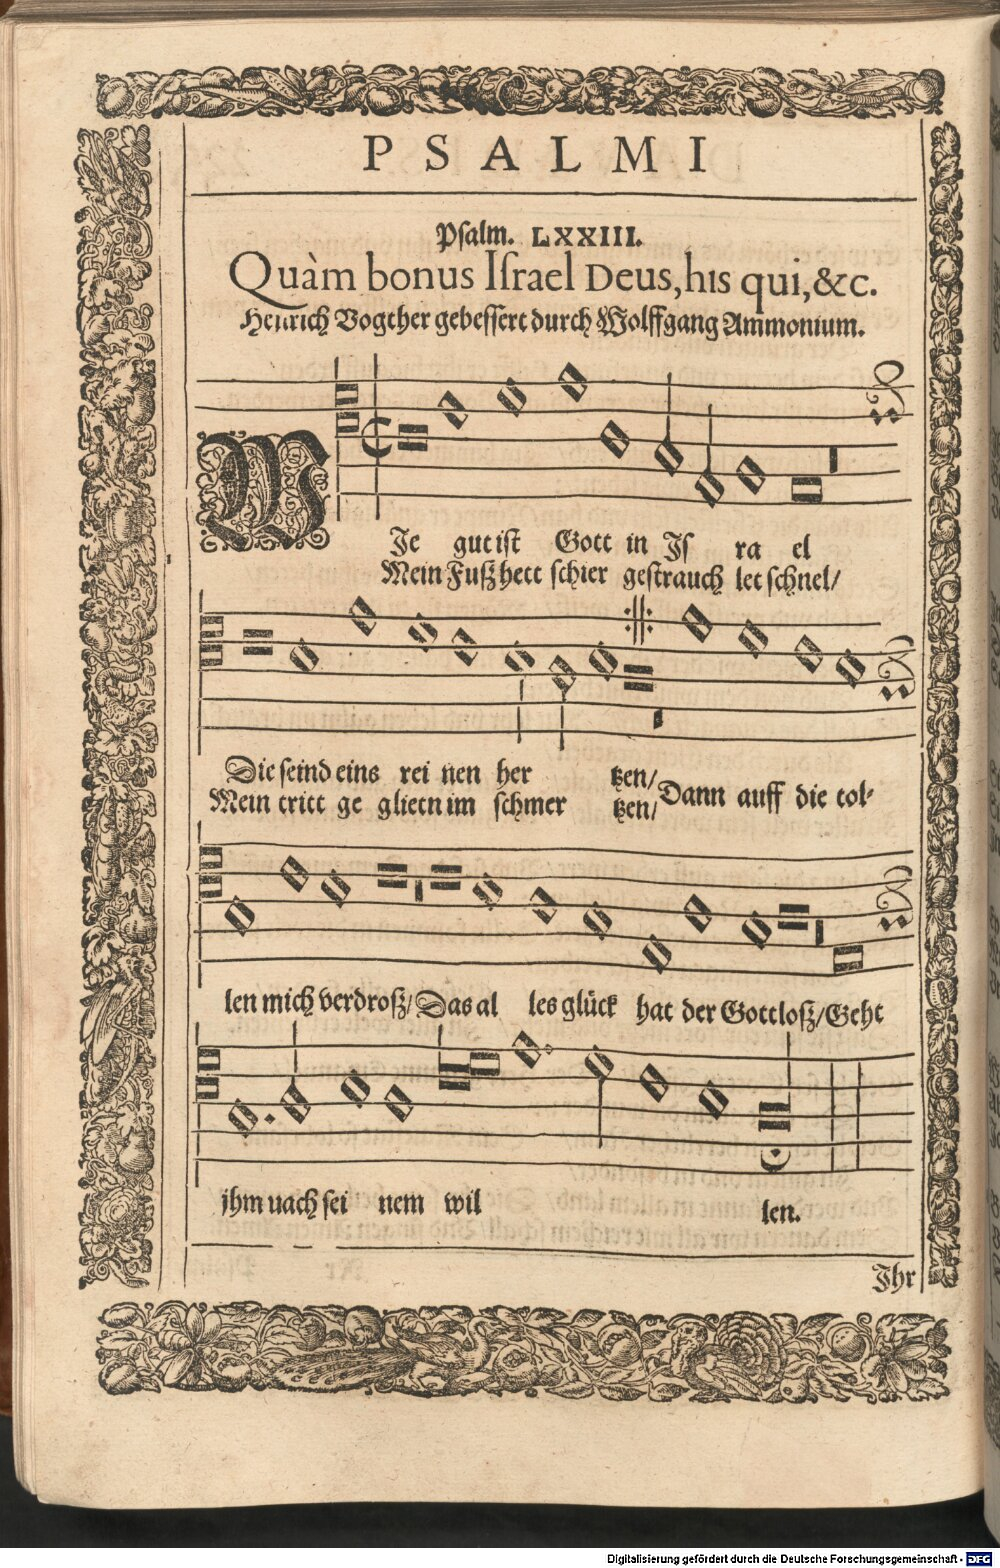 PSALMI
Psalm. LXXIII.
Quàm bonus Iſrael Deus, his qui, &c.
Heinrich Vogther gebeſſert durch Wolffgang Ammonium.
WJe gut iſt Gott in Jſ ra el
Mein Fuß hett ſchier geſtrauch let ſchnel/
Die ſeind eins rei nen her tzen/
Mein tritt ge glietn im ſchmer tzen/ Dann auff die tol-
len mich verdroß/ Das al les glück hat der Gottloß/ Geht
jhm nach ſei nem wil len.
Jhr
Digitalisierung gefördert durch die Deutsche Forschungsgemeinschaft - DFG